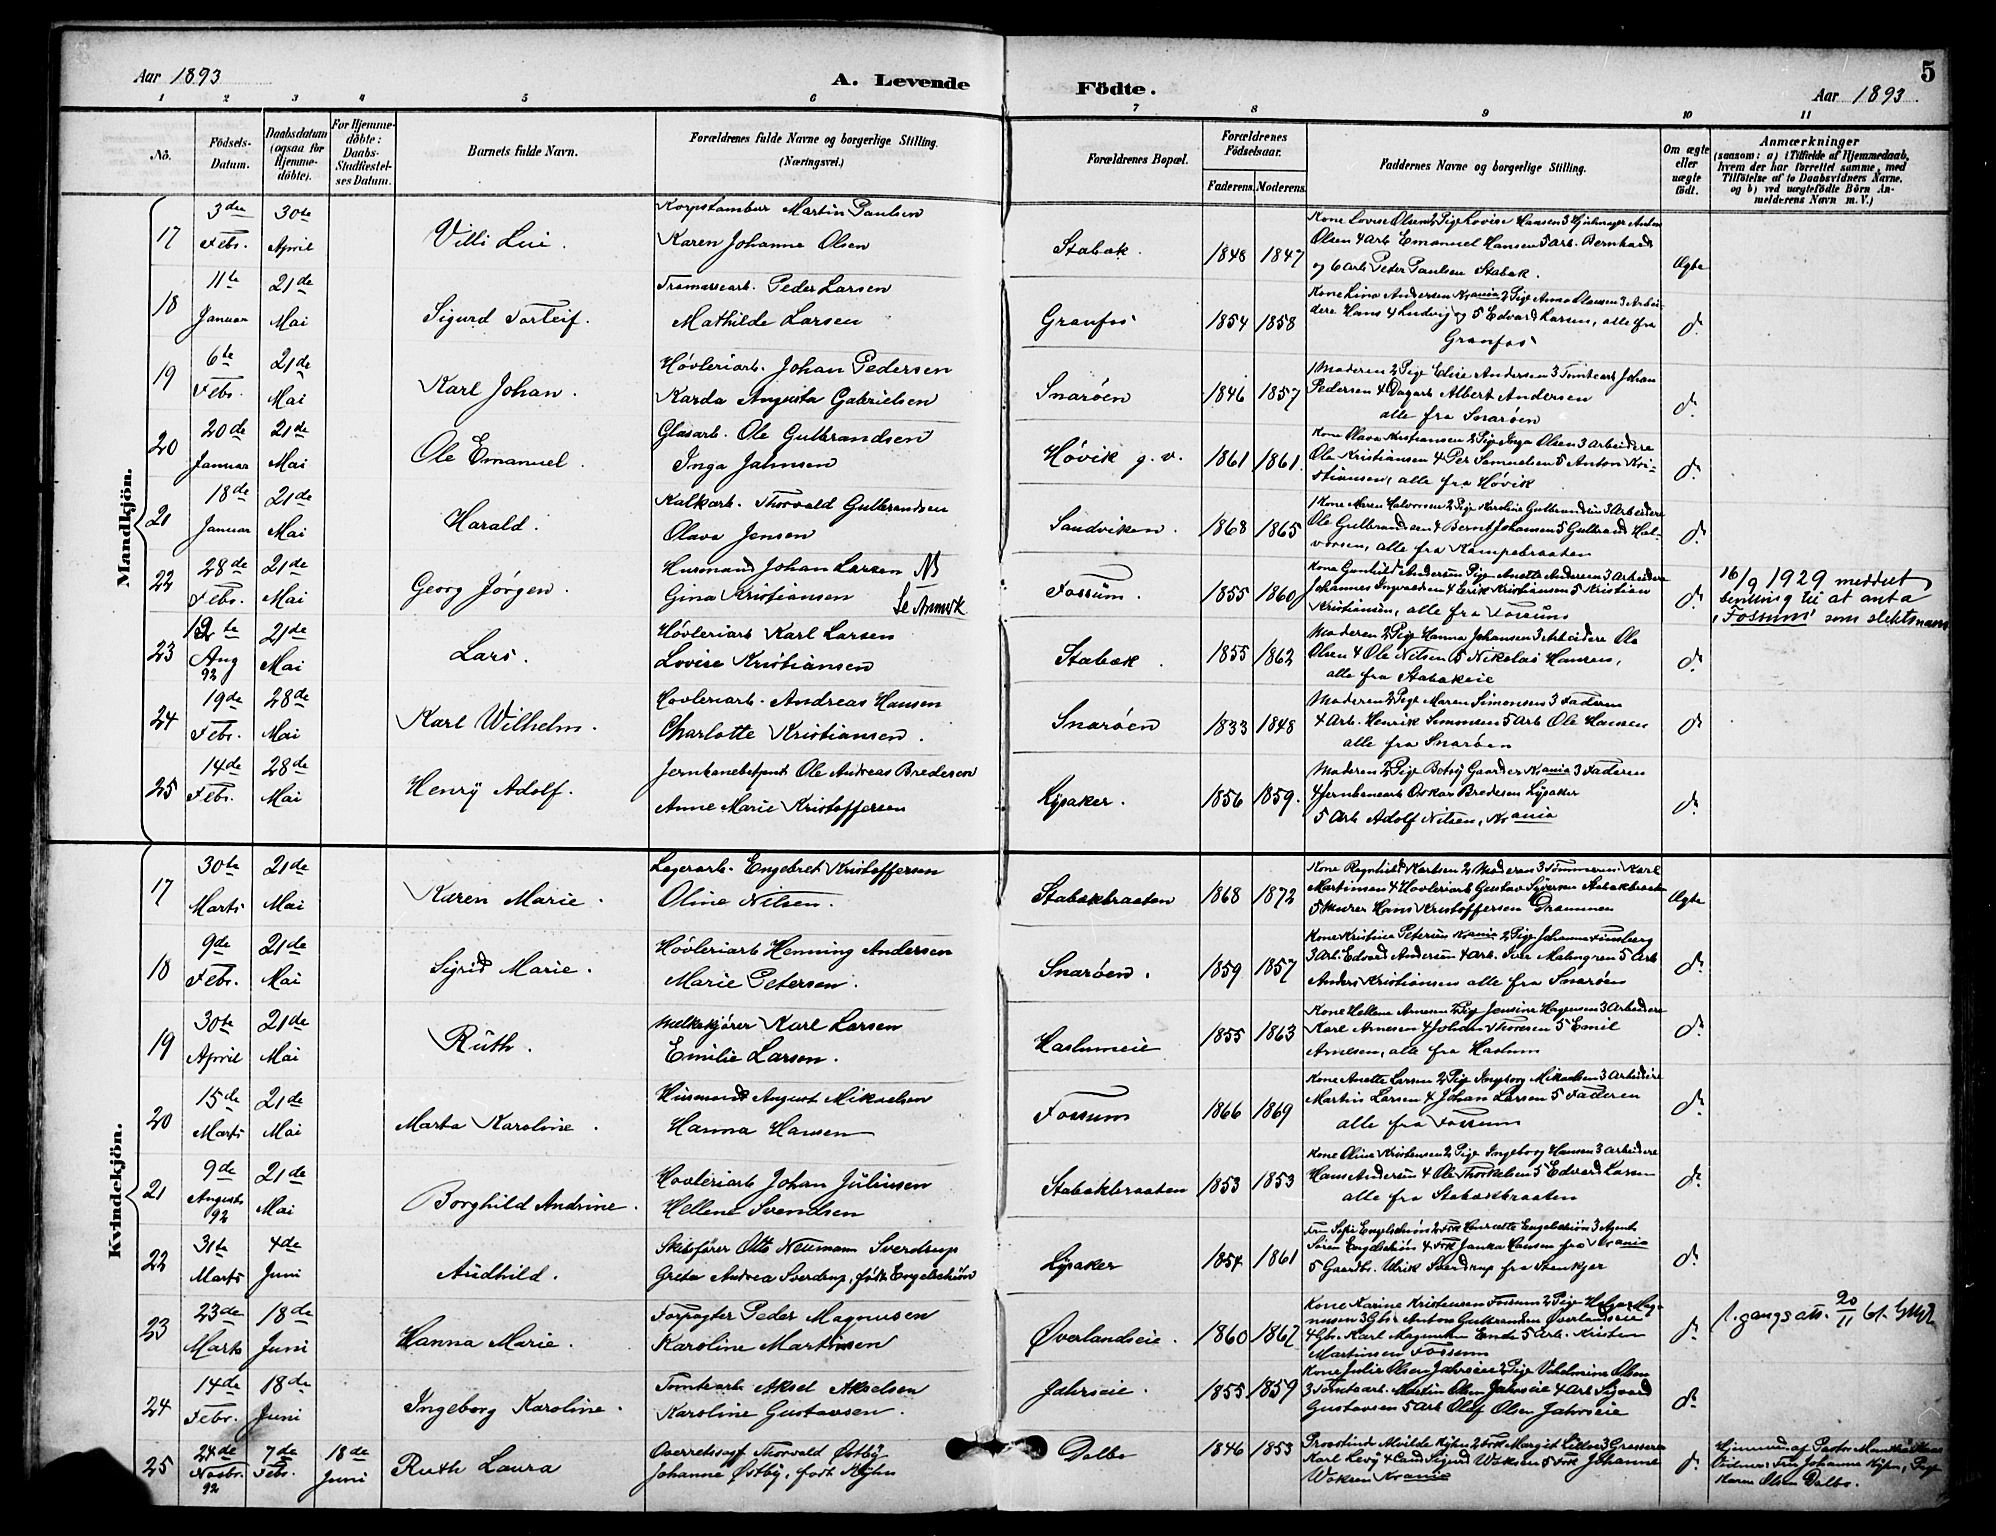 Aar 1893
A. Levende Födte.
5
Aar 1893
1 2 3 4 5 6 7 8 9 10 11
No. | Födsels-Datum. | Daabsdatum (ogsaa for Hjemme-döbte). | For Hjemme-döbte: Daabs-Stadfæstel-ses Datum. | Barnets fulde Navn. | Forældrenes fulde Navne og borgerlige Stilling. (Næringsvei.) | Forældrenes Bopæl. | Forældrenes Födselsaar. Faderens. Moderens. | Faddernes Navne og borgerlige Stilling. | Om ægte eller uægte födt. | Anmærkninger (saasom: a) i Tilfælde af Hjemmedaab, hvem der har forrettet samme, med Tilföielse af to Daabsvidners Navne, og b) ved uægtefödte Börn An-melderens Navn m. V.)
Mandkjön.
17 | 3die Febr. | 30te April | Villi Lui. | Korpstambur Martin Paulsen
Karen Johanne Olsen | Stabæk. | 1848 | 1847 | Kone Lovise Olsen 2 Pige Lovise Hansen 3 Anton
Olsen 4 Arb. Emanuel Hansen 5 Arb. Bernhard
og 6 Arb. Peter Paulsen Stabæk. | Ægte
18 | 11te Januar | 21de Mai | Sigurd Torleif. | Peder Larsen
Mathilde Larsen | Granfos | 1854 | 1858 | Kone Lina Andersen Krania 2 Pige Anna Olausen 3 Arbei-
dere Hans 4 Ludvig og 5 Edvard Larsen, alle fra
Granfos | do.
19 | 6te Febr. | 21de Mai | Karl Johan. | Høvleriarb. Johan Pedersen
Karda Augusta Gabrielsen | Snarøen | 1846 | 1857 | 1 Moderen 2 Pige Elise Andersen 3 Tomtearb Johan
Pedersen 4 Dagarb Albert Andersen
alle fra Snarøen | do.
20 | 20de Januar | 21de Mai | Ole Emanuel. | Glasarb. Ole Gulbrandsen
Inga Jahnsen | Høvik g. v. | 1861 | 1861. | Kone Olava Kristiansen 2 Pige Inga Olsen 3 Arbeidere
Ole Kristiansen 4 Per Samuelsen 5 Anton Kri-
stiansen, alle fra Høvik | do.
21 | 18de Januar | 21de Mai | Harald. | Kalkarb. Thorvald Gulbrandsen
Olava Jensen | Sandviken. | 1868 | 1865 | 1 Kone Maren Halvorsen 2 Pige Karoline Gulbrandsen 3 Arbeidere
Ole Gulbrandsen 4 Bernt Johansen 5 Gulbrand Hal-
vorsen, alle fra Kampebraaten | do.
22 | 28de Febr. | 21de Mai | Georg Jørgen. | Husmand Johan Larsen NB
Gina Kristiansen Se Anmerk | Fossum. | 1855 | 1860 | Kone Gunhild Andersen Pige Anette Andersen 3 Arbeidere
Johannes Ingvaldsen 4 Erik Kristiansen 5 Kristian
Kristiansen, alle fra Fossum | do. | 16/9 1929 meddelt
bevilling til at anta
"Fossum" som slektsnavn
23 | 12te Aug 92 | 21de Mai | Lars. | Høvleriarb Karl Larsen
Lovise Kristiansen | Stabæk. | 1855 | 1862 | Moderen 2 Pige Hanna Johansen 3 Arbeidere Ole
Olsen 4 Ole Nilsen 5 Nikolai Hansen,
alle fra Stabækeie | do.
24 | 19de Febr. | 28de Mai | Karl Wilhelm. | Høvleriarb. Andreas Hansen
Charlotte Kristiansen. | Snarøen | 1833 | 1848 | Moderen 2 Pige Maren Simonsen 3 Faderen
4 Arb. Henrik Simonsen 5 Arb Ole Hansen
alle fra Snarøen | do.
25 | 14de Febr. | 28de Mai | Henry Adolf. | Ole Andreas Bredesen
Anne Marie Kristoffersen | Lysaker. | 1856 | 1859. | Moderen 2 Pige Betsy Gaarder Krania 3 Faderen
4 Jernbanearb Oskar Bredesen Lysaker
5 Arb Adolf Nilsen, Krania | do.
Kvindekjön.
17 | 30te Marts | 21de Mai | Karen Marie. | Lagerarb. Engebret Kristoffersen
Oline Nilsen. | Stabækbraaten | 1868 | 1872 | Kone Ragnhild Karlsen 2 Moderen 3 Tømmermn. Karl
Martinsen 4 Høvleriarb Gustav Syversen Stabækbraaten
5 Murer Hans Kristoffersen Drammen | Ægte
18 | 9de Febr. | 21de Mai | Sigrid Marie. | Høvleriarb Henning Andersen
Marie Petersen. | Snarøen. | 1859 | 1857 | Kone Kristina Petersen Krania 2 Pige Johanna Finsberg
3 Arb. Edvard Andersen 4 Arb. Malmgren 5 Arb
Anders Kristiansen alle fra Snarøen | do.
19 | 30te April | 21de Mai | Ruth. | Melkekjører Karl Larsen
Emilie Larsen. | Haslumeie | 1855 | 1863 | Kone Hellene Arnesen 2 Pige Jensine Hagensen 3 Arbeidere
Karl Arnesen 4 Johan Thoresen 5 Emil
Arnesen, alle fra Haslum | do.
20 | 15de Marts | 21de Mai | Marta Karoline. | Husmand August Mikaelsen
Hanna Hansen | Fossum | 1866 | 1869 | Kone Anette Larsen 2 Pige Ingeborg Mikaelsen 3 Arbeidere
Martin Larsen 4 Johan Larsen 5 Faderen
alle fra Fossum | do.
21 | 9de August 92 | 21de Mai | Borghild Andrine. | Høvleriarb Johan Juliussen
Hellene Svendsen | Stabækbraaten | 1853 | 1853 | Kone Oline Kristensen 2 Pige Ingeborg Hansen 3 Arbeidere
Hans Andersen 4 Ole Thorkelsen 5 Edvard Larsen
alle fra Stabækbraaten | do.
22 | 31te Marts | 4de Juni | Audhild. | Skibsfører Otto Neumann Sverdrup
Greta Andrea Sverdrup, født Engelschiøn | Lysaker | 1854 | 1861 | Fru Engelschiøn 2 Frk Henriette Engelschiøn 3 Agent
Søren Engelschiøn 4 Frk Janka Hansen fra Krania
5 Gaardbr. Ulrik Sverdrup fra Stenkjer | do.
23 | 23de Marts | 18de Juni | Hanna Marie. | Forpagter Peder Magnussen
Karoline Martinsen | Øverlandseie. | 1860 | 1867 | Kone Karine Kristensen Fossum 2 Pige Helga Mag-
nussen 3 Gbr. Anton Gulbrandsen Øverlandseie
4 Gbr. Karl Magnussen Ende 5 Arb. Kristen
Martinsen Fossum | do. | 1. gangs att. 20/11 61.
24 | 14de Febr. | 18de Juni | Ingeborg Karoline. | Tomtearb Aksel Akselsen
Karoline Gustavsen. | Jahrseie. | 1855 | 1859 | Kone Julie Olsen Jahrseie 2 Pige Vilhelmine Olsen
3 Tomtearb. Martin Olsen Jahrseie 4 Arb Sigvard
Gustavsen 5 Arb Olaf Olsen Jahrseie | do.
25 | 24de Novbr. 92 | 7de Febr. | 18de Juni | Ruth Laura | Overretssagf Thorvald Østby
Johanne Østby, født Kyhn | Dalbo | 1846 | 1853 | Provstinde Mvilde Kyhn 2 Frk Margit Lilloe 3 Grosserer
Karl Levy 4 Cand Sigurd Woksen 5 Frk Johanne
Woksen Krania | do. | Hjemmed. af Pastor
Vidner: Fru Johanne Kyhn, Pige
Karen Olsen Dalbo.